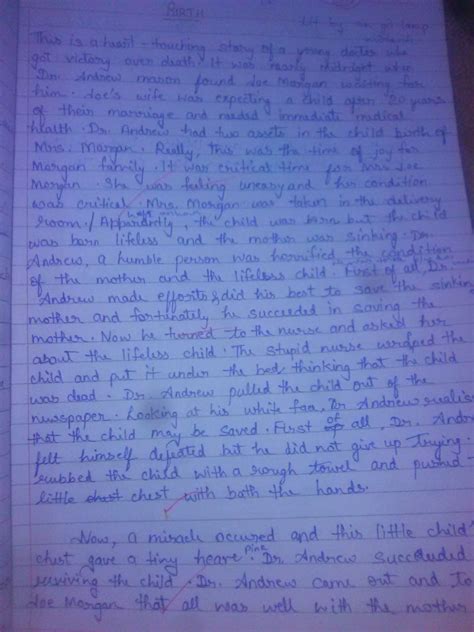 BIRTH
lit by an go lamp
This is a heart-touching story of a young doctor who
got victory over death. It was nearly midnight when
Dr. Andrew mason found Joe Morgan waiting for
him. Joe's wife was expecting a child after 20 years
of their marriage and needed immediate medical
health. Dr. Andrew had two assets in the child birth of
Mrs. Morgan. Really, this was the time of joy for
Morgan family. It was critical time for Mrs Joe
Morgan. She was feeling uneasy and her condition
was critical. Mrs. Morgan was taken in the delivery
room. Apparently, the child was born but the child
was born lifeless and the mother was sinking. Dr.
Andrew, a humble person was horrified the condition
of the mother and the lifeless child. First of all, Dr.
Andrew made efforts & did his best to save the sinking
mother and fortunately he succeeded in saving the
mother. Now he turned to the nurse and asked her
about the lifeless child. The stupid nurse wraped the
child and put it under the bed thinking that the child
was dead. Dr. Andrew pulled the child out of the
newspaper. Looking at his white face, Dr Andrew
that the child may be saved. First of all, Dr. Andrew
felt himself defeated but he did not give up Trying
rubbed the child with a rough towel and pushed
little chest with both the hands.
Now, a miracle occured and this little child
chest gave a tiny heave. Dr. Andrew
the child. Dr. Andrew came out and to
Joe Morgan that all was well with the mother